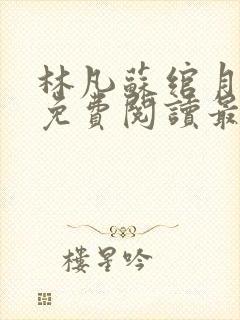 林凡蘇綰月
免費閱讀最
樓星吟